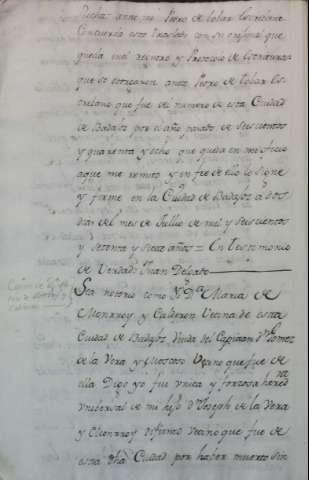 fecha ante mi Pedro de Tobar Escribano
Concuerda este traslado con su original que
queda en el rexistro y Protocolo de Escrituras
que se otorgaron ante Pedro de tobar Es
cribano que fue de numero de esta Ciudad
de Badajoz por el año pasado de seiscientos
y quarenta y ocho que queda en mi oficio
aque me remito y en fee de ello lo signe
y firme en la Ciudad de Badajoz a dos
dias del mes de Jullio de mil y seiscientos
y setenta y siete años = En testimonio
de Verdad Juan Delgado
Sea notorio como Yo Dª Maria de
Monrroy y Calderon Vecina de esta
Ciudad de Badajoz Viuda del Capitan Dn Gomez
de la Vera y Moscoso Vecino que fue de
ella Digo yo fui unica y forzosa hered.ra
universal de mi hijo Dn Joseph de la Vera
y Monrroy difunto vecino que fue de
esta dha Ciudad por haver muerto sin